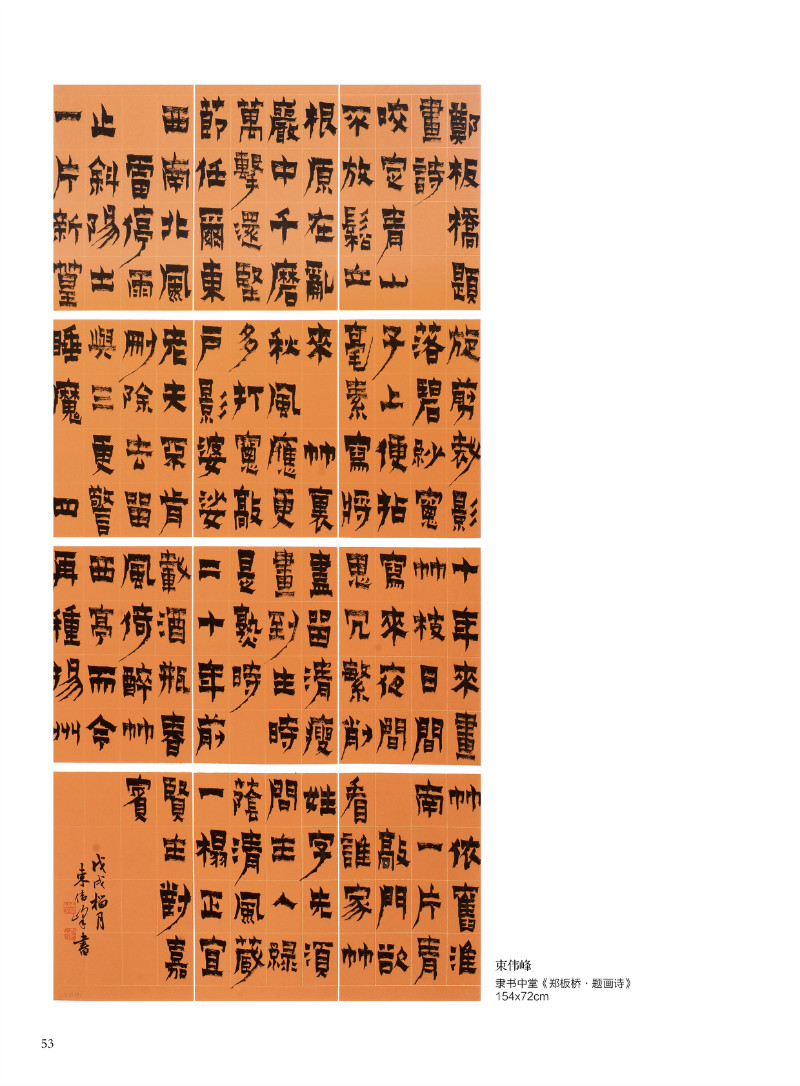 鄭板橋題
畫詩
咬定青山
不放鬆立
根原在亂
巖中千磨
萬擊還堅
節任爾東
西南北風
雷停雨
止斜陽出
一片新篁
旋剪裁影
落碧紗窗
子上便拈
毫素寫將
來 竹裏
秋風應更
多打窗敲
戶影婆娑
老夫不肯
刪除去留
與三更警
睡魔 四
十年來畫
竹枝日間
寫來夜間
思冗繁削
盡留清瘦
畫到生時
是熟時
二十年前
載酒瓶春
風倚醉竹
西亭而今
再種揚州
竹依舊淮
南一片青
敲門欲
看誰家竹
姓字先須
問主人綠
蔭清風藏
一榻正宜
賢主對嘉
賓
戊戌榴月
束偉峰書
束伟峰
隶书中堂《郑板桥·题画诗》
154x72cm
53